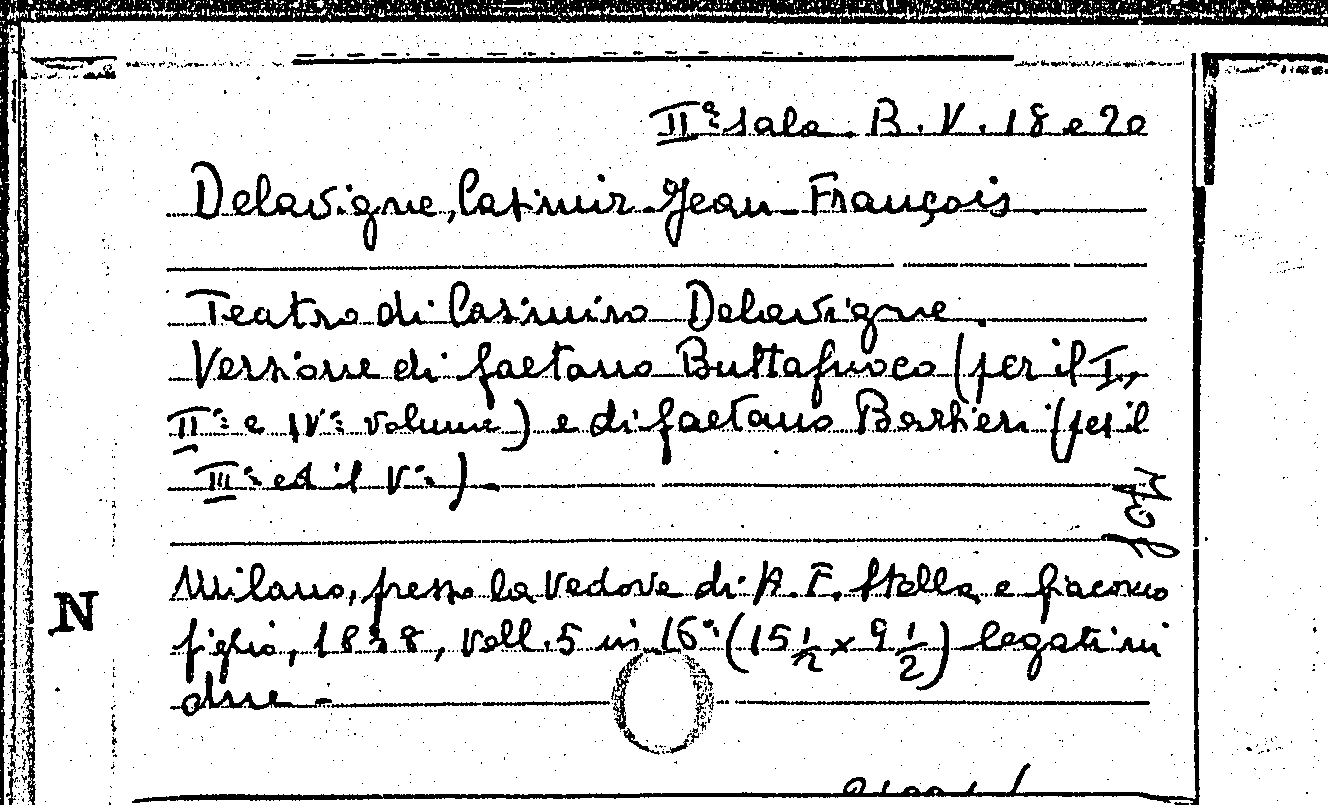 IIª sala. B. V. 18 e 20
Delavigne, Casimir Jean François.
Teatro di Casimiro Delavigne.
Versione di Gaetano Buttafuoco (per il I,
IIº e IVº volume) e di Gaetano Barbieri (per il
IIIº ed il Vº).
Milano, presso la vedova di A. F. Stella e Giacomo
N
figlio, 1838, voll. 5 in 16º (15 1/2 x 9 1/2) legati in
due -